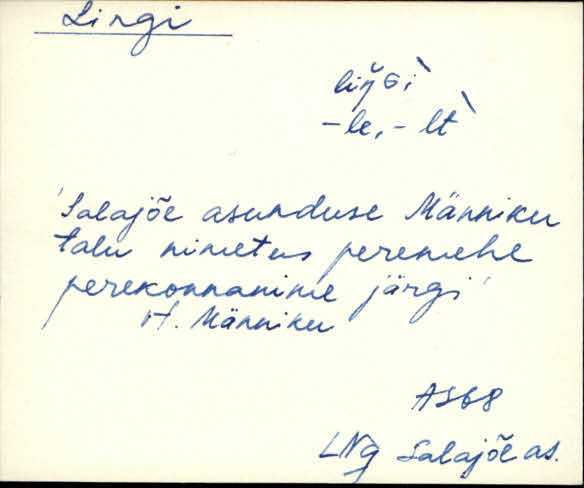 Lingi
liŋ̆Gi`
-le, -lt`
'Salajõe asunduse Männiku
talu nimetus peremehe
perekonnanime järgi'
H. Männiku
AS68
LNg Salajõe as.